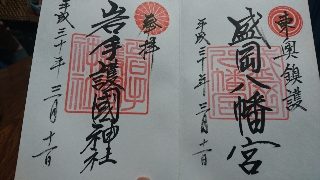 東奥鎮護
盛岡八幡宮
平成三十年三月十一日
奉拝
岩手護國神社
平成三十年三月十一日